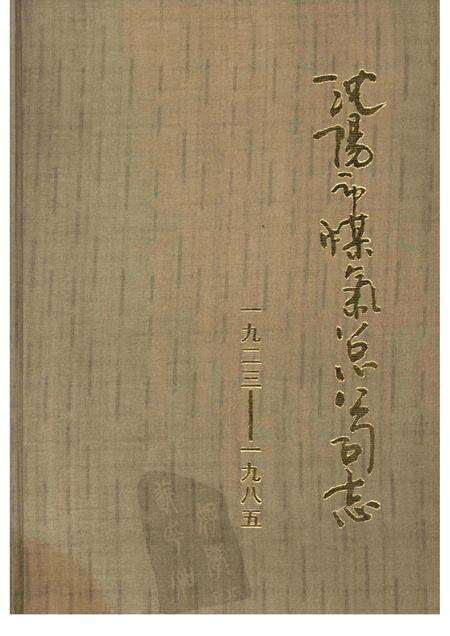 沈阳市煤氣总公司志
一九二三——一九八五